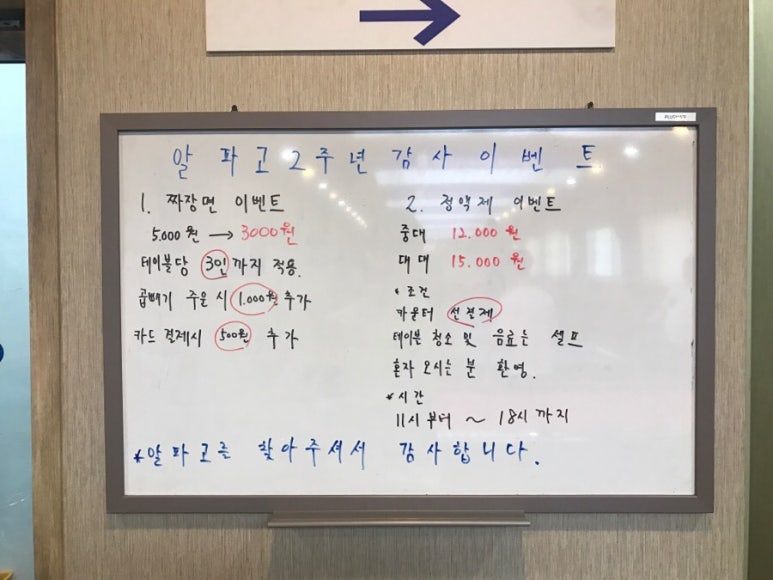 알파고 2주년 감사 이벤트
1. 짜장면 이벤트
5.000원 → 3000원
테이블당 3인까지 적용.
곱빼기 주문 시 1.000원 추가
카드 결제시 500원 추가
2. 정액제 이벤트
중대 12.000원
대대 15.000원
* 조건
카운터 선결제
테이블 청소 및 음료는 셀프
혼자 오시는 분 환영.
* 시간
11시부터 ~ 18시까지
* 알파고를 찾아주셔서 감사합니다.